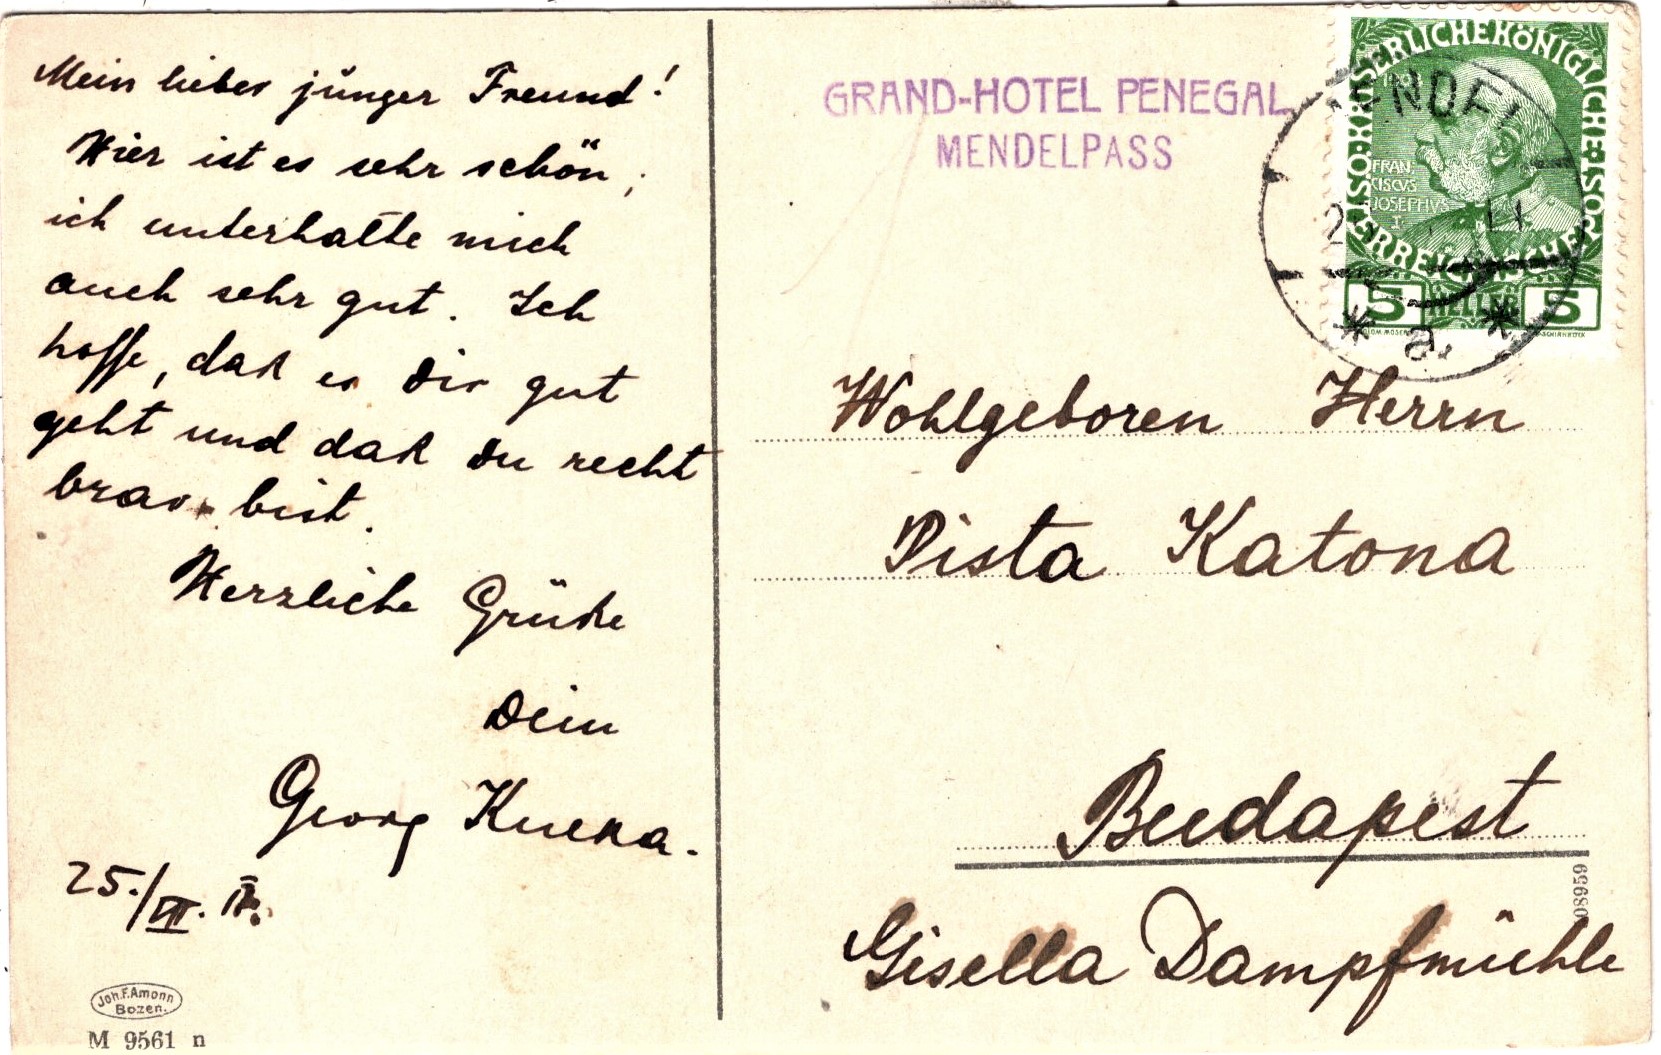 Mein lieber junger Freund!
Hier ist es sehr schön,
ich unterhalte mich
auch sehr gut. Ich
hoffe, daß es Dir gut
geht und daß du recht
brav bist.
Herzliche Grüße
Dein
Georg
25./VII.
Joh.F.Amonn
Bozen.
M 9561 n
GRAND-HOTEL PENEGAL
MENDELPASS
KAISERLICHE KÖNIGLICHE ÖSTERREICHISCHE
FRAN-
CISCVS
JOSEPHVS
I.
5 HELLER 5
* a. *
Wohlgeboren Herrn
Pista Katona
Budapest
Gisella Dampfmühle
08959